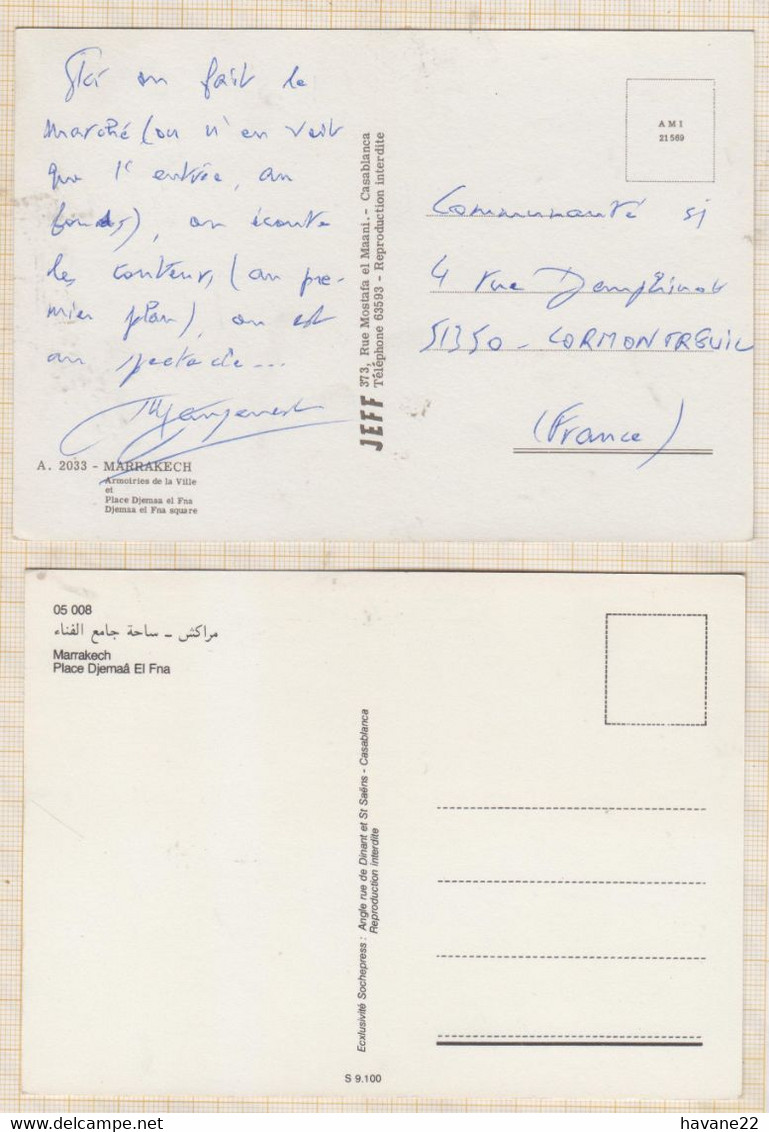 Ici on fait le
marché (on n'en voit
que l'entrée, au
fond), on écoute
les conteurs, (au pre-
mier plan), on est
au spectacle...
A. 2033 - MARRAKECH
Armoiries de la Ville
et
Place Djemaa el Fna
Djemaa el Fna square
JEFF 373, Rue Mostafa el Maani. - Casablanca
Téléphone 63593 - Reproduction interdite
AMI
21 569
Communauté
4 rue
51350 - CORMONTREUIL
(France)
05 008
مراكش - ساحة جامع الفناء
Marrakech
Place Djemaâ El Fna
Ecxlusivité Sochepress : Angle rue de Dinant et St Saëns - Casablanca
Reproduction interdite
S 9.100
havane22